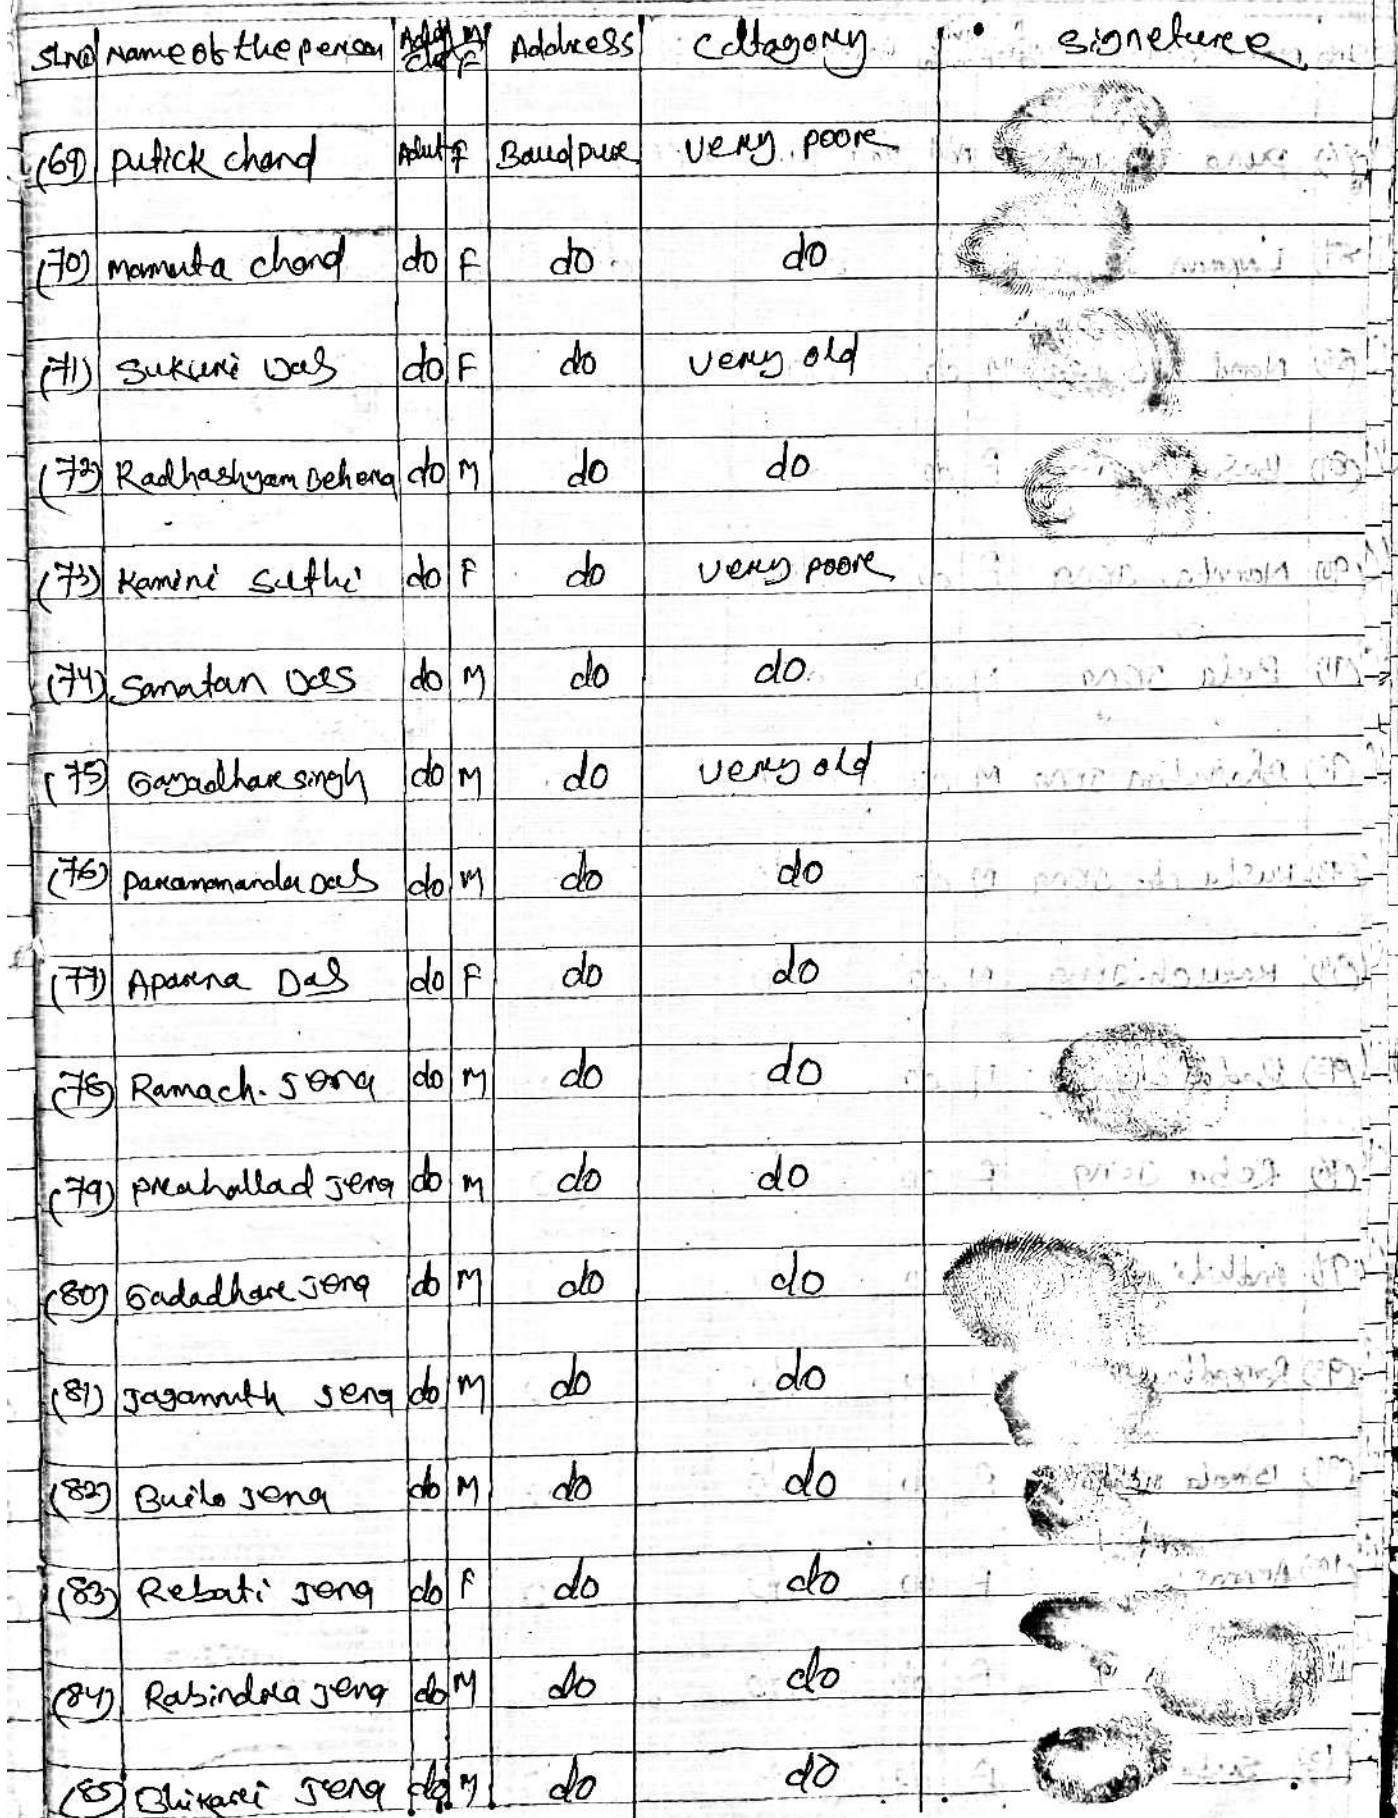 SLno Name of the person Adult/ M/ Address Cattagory Signeture
F
(69) Putick chand Adult F Baudpur very poore
(70) Mamuta chand do F do do
(71) Sukuri Das do F do very old
(72) Radhashyam Behera do M do do
(73) Kamini Sethi do F do very poore
(74) Sanatan Das do M do do
(75) Gayadhar singh do M do very old
(76) Paramananda Das do M do do
(77) Aparna Das do F do do
(78) Ramach. Jena do M do do
(79) Prahallad Jena do M do do
(80) Gadadhar Jena do M do do
(81) Jagannath Jena do M do do
(82) Jena do M do do
(83) Rebati Jena do F do do
(84) Rabindra Jena do M do do
(85) Bhikari Jena do M do do